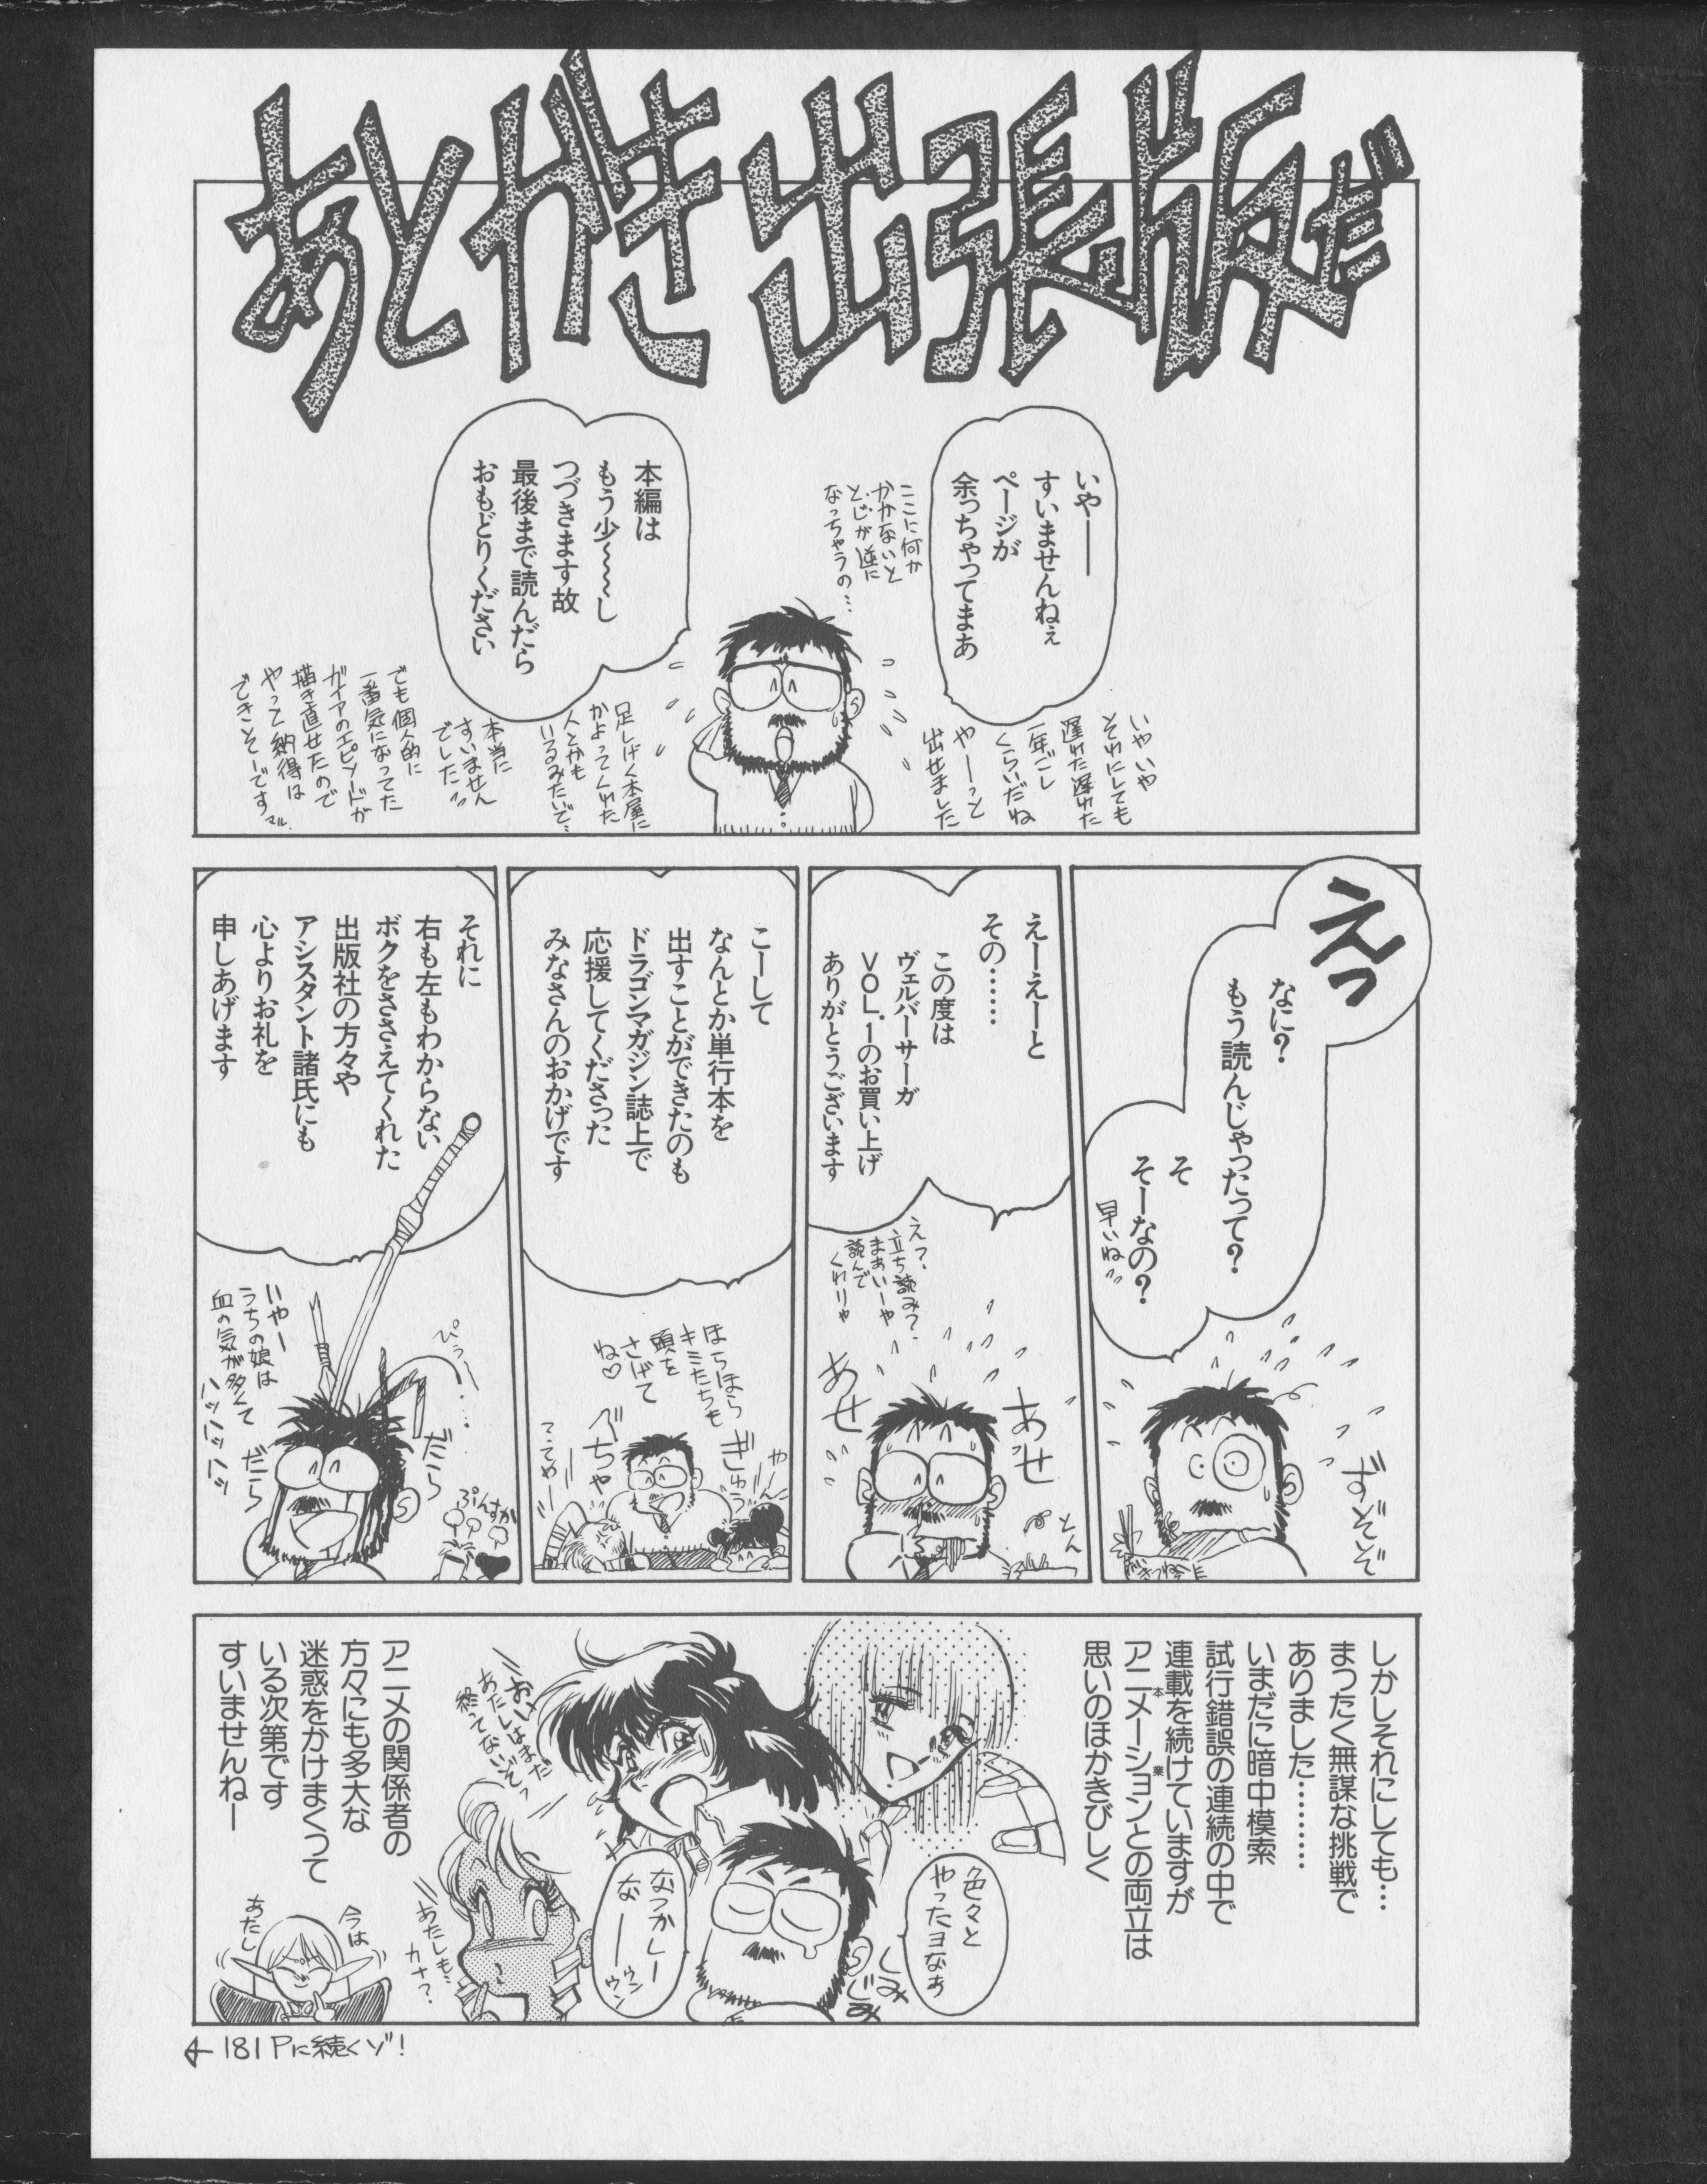 あとがき出張版だ
いやー
すいませんねぇ
ページが
余っちゃってまあ
ここに何か
かかないと
とじが逆に
なっちゃうの…
本編は
もう少～～～し
つづきます故
最後まで読んだら
おもどりください
いやいや
それにしても
遅れた遅れた
一年ごし
くらいだね
やーっと
出せました
足しげく本屋に
かよってくれた
人とかも
いるみたいで…
本当に
すいません
でした
でも個人的に
一番気になってた
ガイアのエピソードが
描き直せたので
やっと納得は
できそーです
えっ
なに?
もう読んじゃったって?
そ
そーなの?
早いね
ずぞぞぞ
えーえーと
その……
この度は
ヴェルバーサーガ
VOL.1のお買い上げ
ありがとうございます
え?
立ち読み?
まぁいーや
読んで
くれりゃ
あせ
あせ
とん
こーして
なんとか単行本を
出すことができたのも
ドラゴンマガジン誌上で
応援してくださった
みなさんのおかげです
ほらほら
キミたちも
頭を
さげて
ね♡
ぎゅう
べちゃ
やーん
それに
右も左もわからない
ボクをささえてくれた
出版社の方々や
アシスタント諸氏にも
心よりお礼を
申しあげます
ぴゅー…
いやー
うちの娘は
血の気が多くて
ハッハッハッ
だら
だら
ぷんすか
しかしそれにしても…
まったく無謀な挑戦で
ありました………
いまだに暗中模索
試行錯誤の連続の中で
連載を続けていますが
アニメーションとの両立は
本業
思いのほかきびしく
色々と
やったヨなぁ
しみ
じみ
なつかしー
なーウンウン
おいっ
あたしはまだ
終ってないぞっ
あたしも…
カナ?
アニメの関係者の
方々にも多大な
迷惑をかけまくって
いる次第です
すいませんねー
今は
あたし
←181Pに続くゾ!